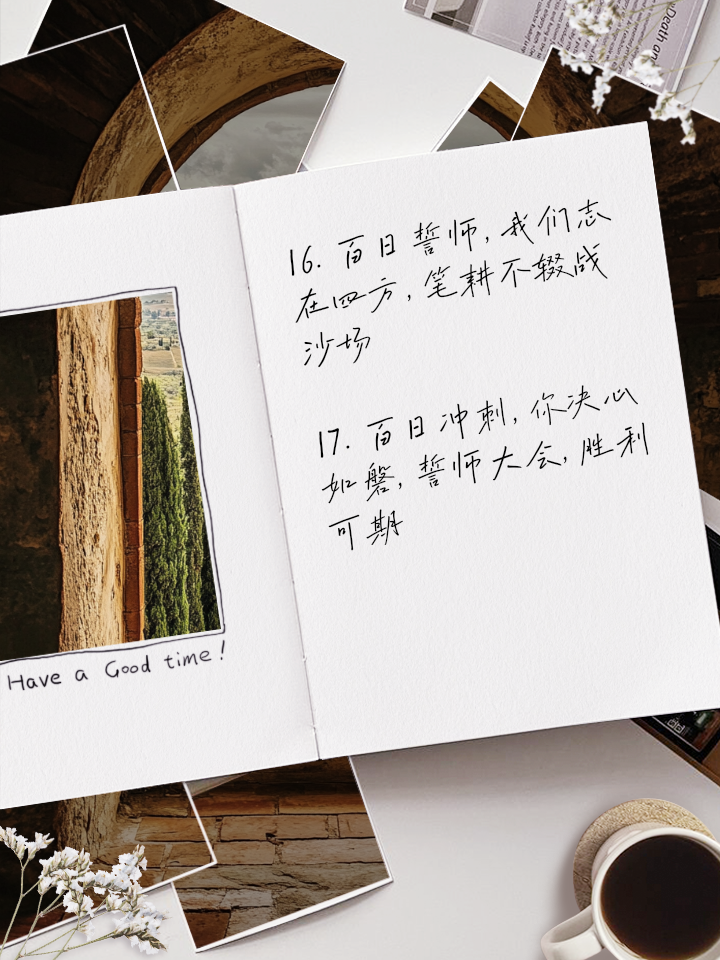 Death an
16. 百日誓师，我们志
在四方，笔耕不辍战
沙场
17. 百日冲刺，你决心
如磐，誓师大会，胜利
可期
Have a Good time!